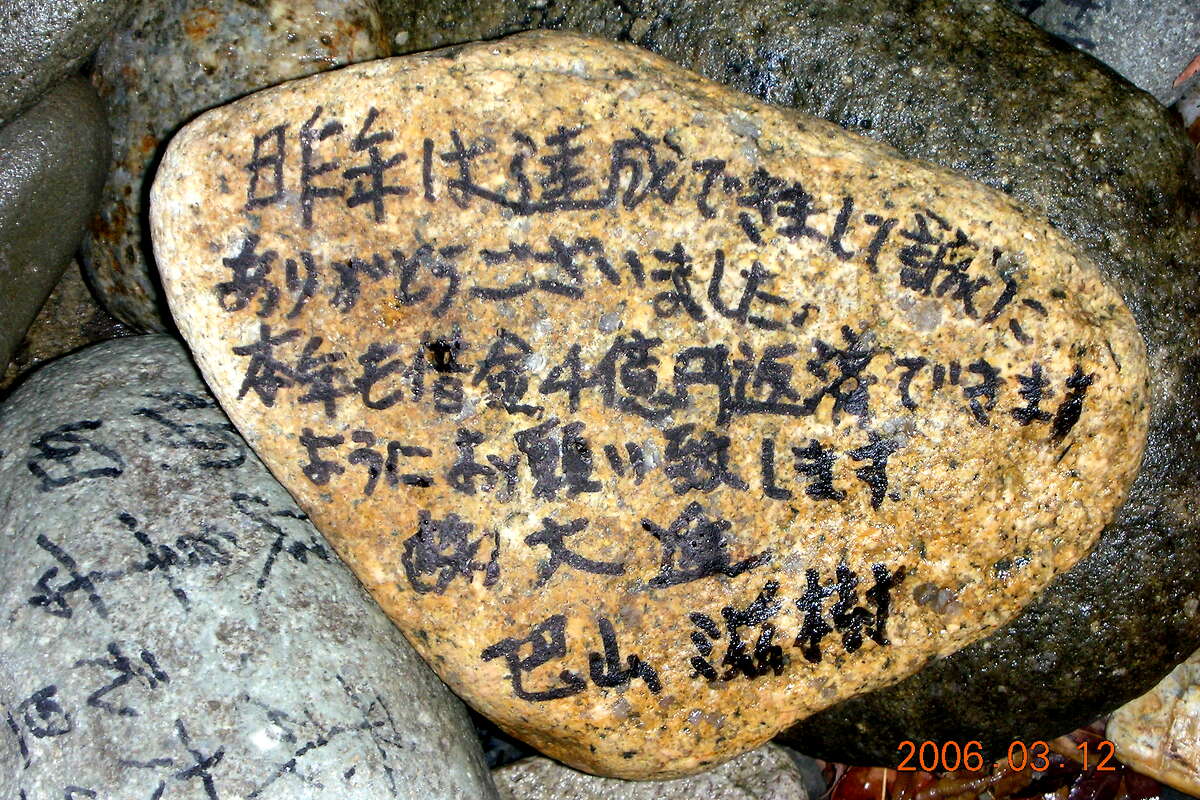 昨年は達成できまして誠に
ありがとうございました。
本年も借金4億円返済できます
ようにお願い致します
大
巴山 滋樹
2006.03.12